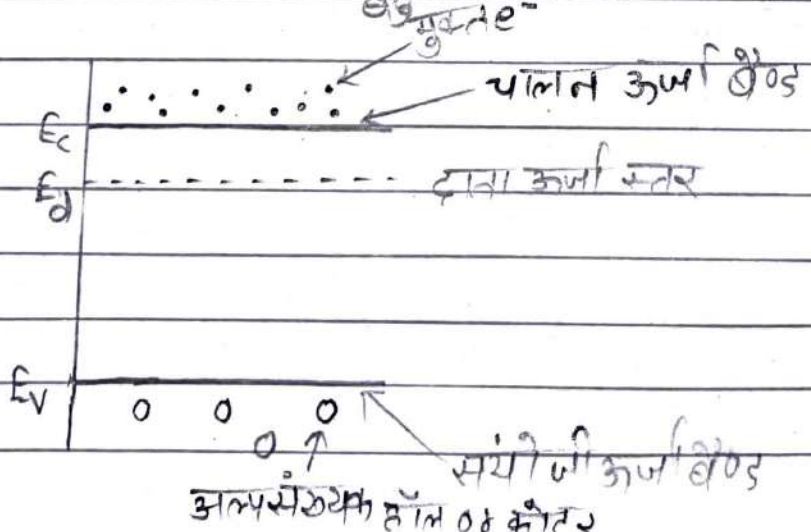 मुक्त e⁻
चालन ऊर्जा बैण्ड
Ec
Ed दाता ऊर्जा स्तर
Ev
संयोजी ऊर्जा बैण्ड
अल्पसंख्यक हॉल or कोटर